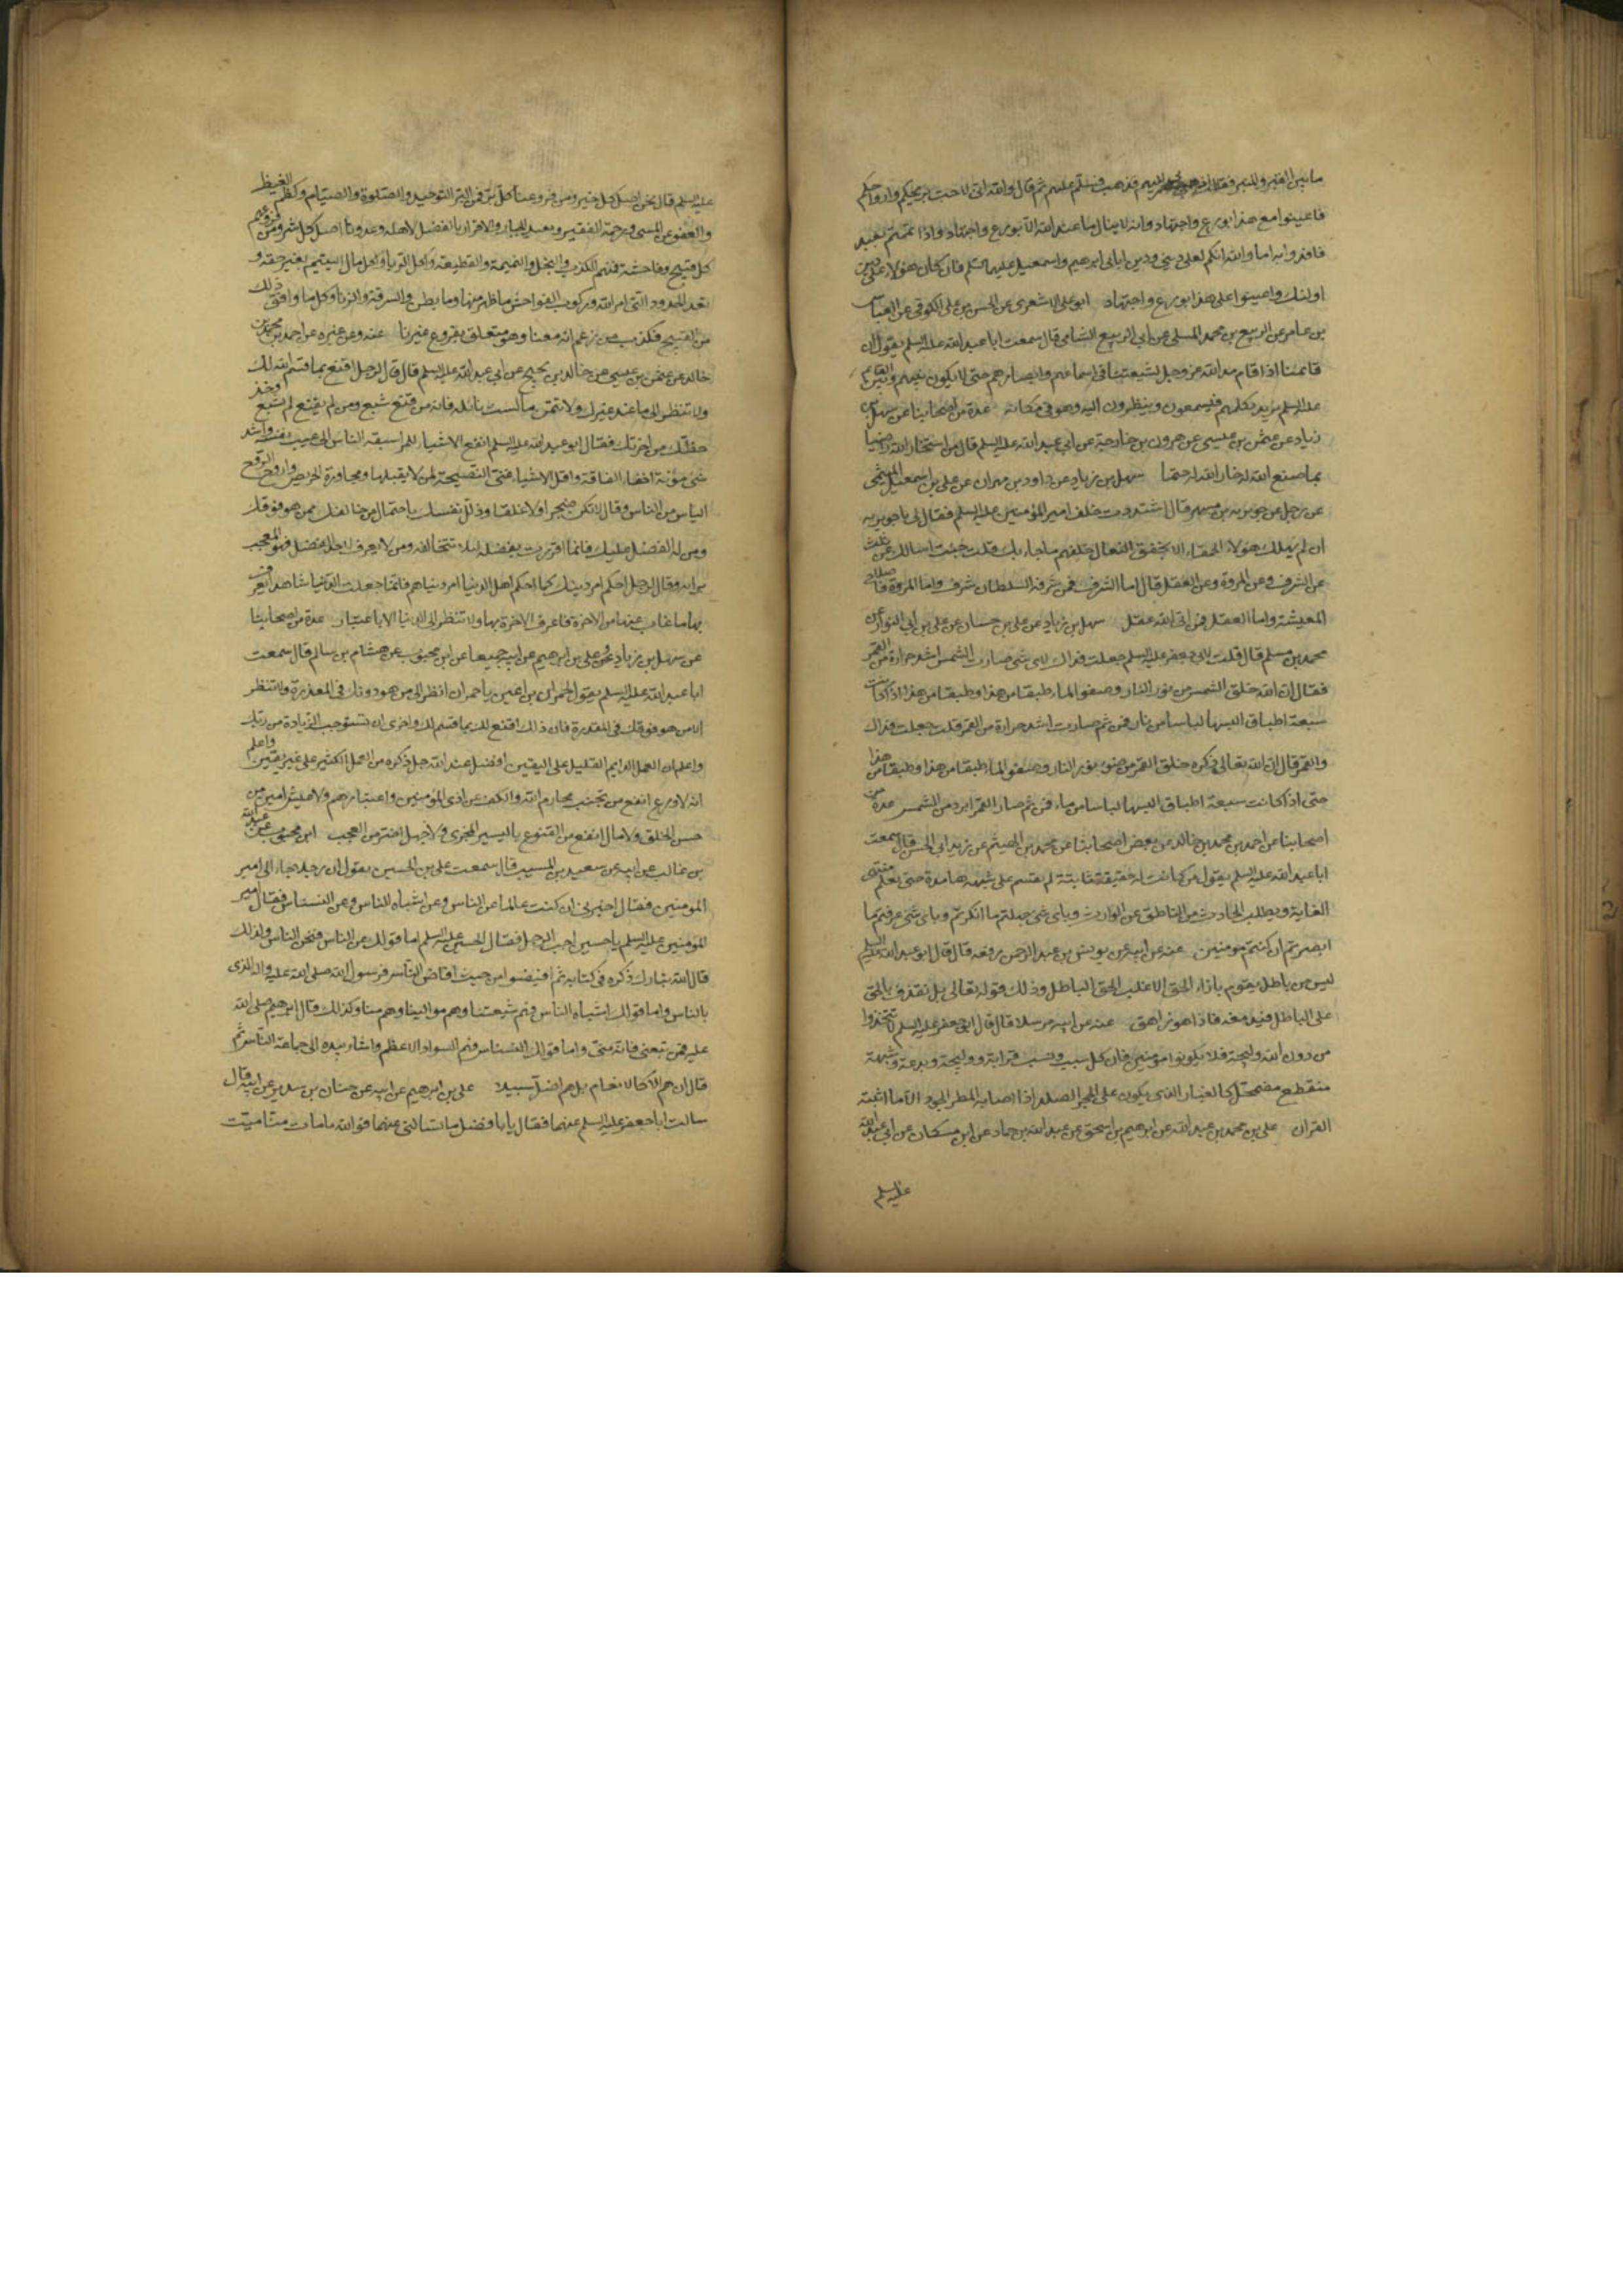 ما بين القبر والمنبر فقال لي فذهب فسلم عليهم ثم قال والله اني لاحب ريحكم وارواحكم
فاعينوا مع هذا بورع واجتهاد وانه لا ينال ما عند الله الا بورع واجتهاد واذا ائتممتم بعبد
فاقتدوا به اما والله انكم لعلى ديني ودين ابائي ابرهيم واسمعيل عليهما السلم فان كان هؤلاء على دين
اولئك واعينوا على هذا بورع واجتهاد ابو علي الاشعري عن الحسن بن علي الكوفي عن العباس
بن عامر عن الربيع بن محمد المسلي عن ابي الربيع الشامي قال سمعت ابا عبد الله عليه السلم يقول ان
قائمنا اذا قام مد الله عز وجل لشيعتنا في اسماعهم وابصارهم حتى لا يكون بينهم وبين القائم
عليه السلم بريد يكلمهم فيسمعون وينظرون اليه وهو في مكانه عدة من اصحابنا عن سهل بن
زياد عن عثمن بن عيسى عن هرون بن خارجة عن ابي عبد الله عليه السلم قال من استخار الله راضيا
بما صنع الله له خار الله له حتما سهل بن زياد عن داود بن مهران عن علي بن اسمعيل الميثمي
عن رجل عن جويرية بن مسهر قال اشتددت خلف امير المؤمنين عليه السلم فقال لي يا جويرية
ان لم يهلك هؤلاء الحمقاء الا بخفق النعال خلفهم ما جاء بك قلت جئت اسالك عن ثلث
عن الشرف وعن المروة وعن العقل قال اما الشرف فمن شرفه السلطان شرف واما المروة فاصلاح
المعيشة واما العقل فمن اتقى الله عقل سهل بن زياد عن علي بن حسان عن علي بن ابي النوار عن
محمد بن مسلم قال قلت لابي جعفر عليه السلم جعلت فداك لاي شي صارت الشمس اشد حرارة من القمر
فقال ان الله خلق الشمس من نور النار وصفو الماء طبقا من هذا وطبقا من هذا حتى اذا كانت
سبعة اطباق البسها لباسا من نار فمن ثم صارت اشد حرارة من القمر قلت جعلت فداك
والقمر قال ان الله تعالى ذكره خلق القمر من ضوء نور النار وصفو الماء طبقا من هذا وطبقا من هذا
حتى اذا كانت سبعة اطباق البسها لباسا من ماء فمن ثم صار القمر ابرد من الشمس عدة من
اصحابنا عن احمد بن محمد بن خالد عن بعض اصحابنا عن محمد بن الهيثم عن زيد ابي الحسن قال سمعت
ابا عبد الله عليه السلم يقول من كانت له حقيقة ثابتة لم يقم على شبهة هامدة حتى يعلم منتهى
الغاية ويطلب الحادث من الناطق عن الوارث وباي شي جهلتم ما انكرتم وباي شي عرفتم ما
ابصرتم ان كنتم مومنين عنه عن ابيه عن يونس بن عبد الرحمن رفعه قال قال ابو عبد الله عليه السلم
ليس من باطل يقوم بازاء الحق الا غلب الحق الباطل وذلك قوله تعالى بل نقذف بالحق
على الباطل فيدمغه فاذا هو زاهق عنه عن ابيه مرسلا قال قال ابو جعفر عليه السلم لا تتخذوا
من دون الله وليجة فلا تكونوا مومنين فان كل سبب ونسب وقرابة ووليجة وبدعة وشبهة
منقطع مضمحل كالغبار الذي يكون على الحجر الصلد اذا اصابه المطر الجود الا ما اثبته
القران علي بن محمد بن عبد الله عن ابرهيم بن اسحق عن عبد الله بن حماد عن ابن مسكان عن ابي عبد الله
عليه السلم
عليه السلم قال نحن اصل كل خير ومن فروعنا كل بر فمن البر التوحيد والصلوة والصيام وكظم الغيظ
والعفو عن المسي ورحمة الفقير وتعهد الجار والاقرار بالفضل لاهله وعدونا اصل كل شر ومن فروعهم
كل قبيح وفاحشة فمنهم الكذب والبخل والنميمة والقطيعة واكل الربا واكل مال اليتيم بغير حقه و
تعد الحدود التي امر الله وركوب الفواحش ما ظهر منها وما بطن والسرقة والزنا وكل ما وافق ذلك
من القبيح فكذب من زعم انه معنا وهو متعلق بفروع غيرنا عنه وعن غيره عن احمد بن محمد بن
خالد عن عثمن بن عيسى عن خالد بن نجيح عن ابي عبد الله عليه السلم قال قال لرجل اقنع بما قسم الله لك
ولا تنظر الى ما عند غيرك ولا تتمن ما لست نائله فانه من قنع شبع ومن لم يقنع لم يشبع وخذ
حظك من اخرتك فقال ابو عبد الله عليه السلم انفع الاشياء للمرء سبقه الناس الى عيب نفسه واشد
شي مؤنة اخفاء الفاقة واقل الاشياء غنى النصيحة لمن لا يقبلها ومجاورة الحريص واروح الروح
الياس من الناس وقال لا تكن ضجرا ولا غلقا وذلل نفسك باحتمال من خالفك ممن هو فوقك
ومن له الفضل عليك فانما اقررت بفضله لئلا تخالفه ومن لا يعرف لاحد الفضل فهو المعجب
برايه وقال لرجل احكم امر دينك كما احكم اهل الدنيا امر دنياهم فانما جعلت الدنيا شاهدا يعرف
بها ما غاب عنها من الاخرة فاعرف الاخرة بها ولا تنظر الى الدنيا الا باعتبار عدة من اصحابنا
عن سهل بن زياد وعلي بن ابرهيم عن ابيه جميعا عن ابن محبوب عن هشام بن سالم قال سمعت
ابا عبد الله عليه السلم يقول لحمران بن اعين يا حمران انظر الى من هو دونك في المقدرة ولا تنظر
الى من هو فوقك في المقدرة فان ذلك اقنع لك بما قسم لك واحرى ان تستوجب الزيادة من ربك
واعلم ان العمل الدايم القليل على اليقين افضل عند الله جل ذكره من العمل الكثير على غير يقين واعلم
انه لا ورع انفع من تجنب محارم الله والكف عن اذى المؤمنين واغتيابهم ولا عيش اهنا من
حسن الخلق ولا مال انفع من القنوع باليسير المجزي ولا جهل اضر من العجب ابن محبوب عن عبد الله
بن غالب عن ابيه عن سعيد بن المسيب قال سمعت علي بن الحسين يقول ان رجلا جاء الى امير
المومنين فقال اخبرني ان كنت عالما عن الناس وعن اشباه الناس وعن النسناس فقال امير
المؤمنين عليه السلم يا حسين اجب الرجل فقال الحسين عليه السلم اما قولك عن الناس فنحن الناس ولذلك
قال الله تبارك ذكره في كتابه ثم افيضوا من حيث افاض الناس فرسول الله صلى الله عليه واله الذي
بالناس واما قولك اشباه الناس فهم شيعتنا وهم موالينا وهم منا وكذلك قال ابرهيم صلى الله
عليه فمن تبعني فانه مني واما قولك النسناس فهم السواد الاعظم واشار بيده الى جماعة الناس ثم
قال ان هم الا كالانعام بل هم اضل سبيلا علي بن ابرهيم عن ابيه عن حنان بن سدير عن ابيه قال
سالت ابا جعفر عليه السلم عنهما فقال يا ابا فضل ما تسالني عنهما فو الله ما مات منا ميت